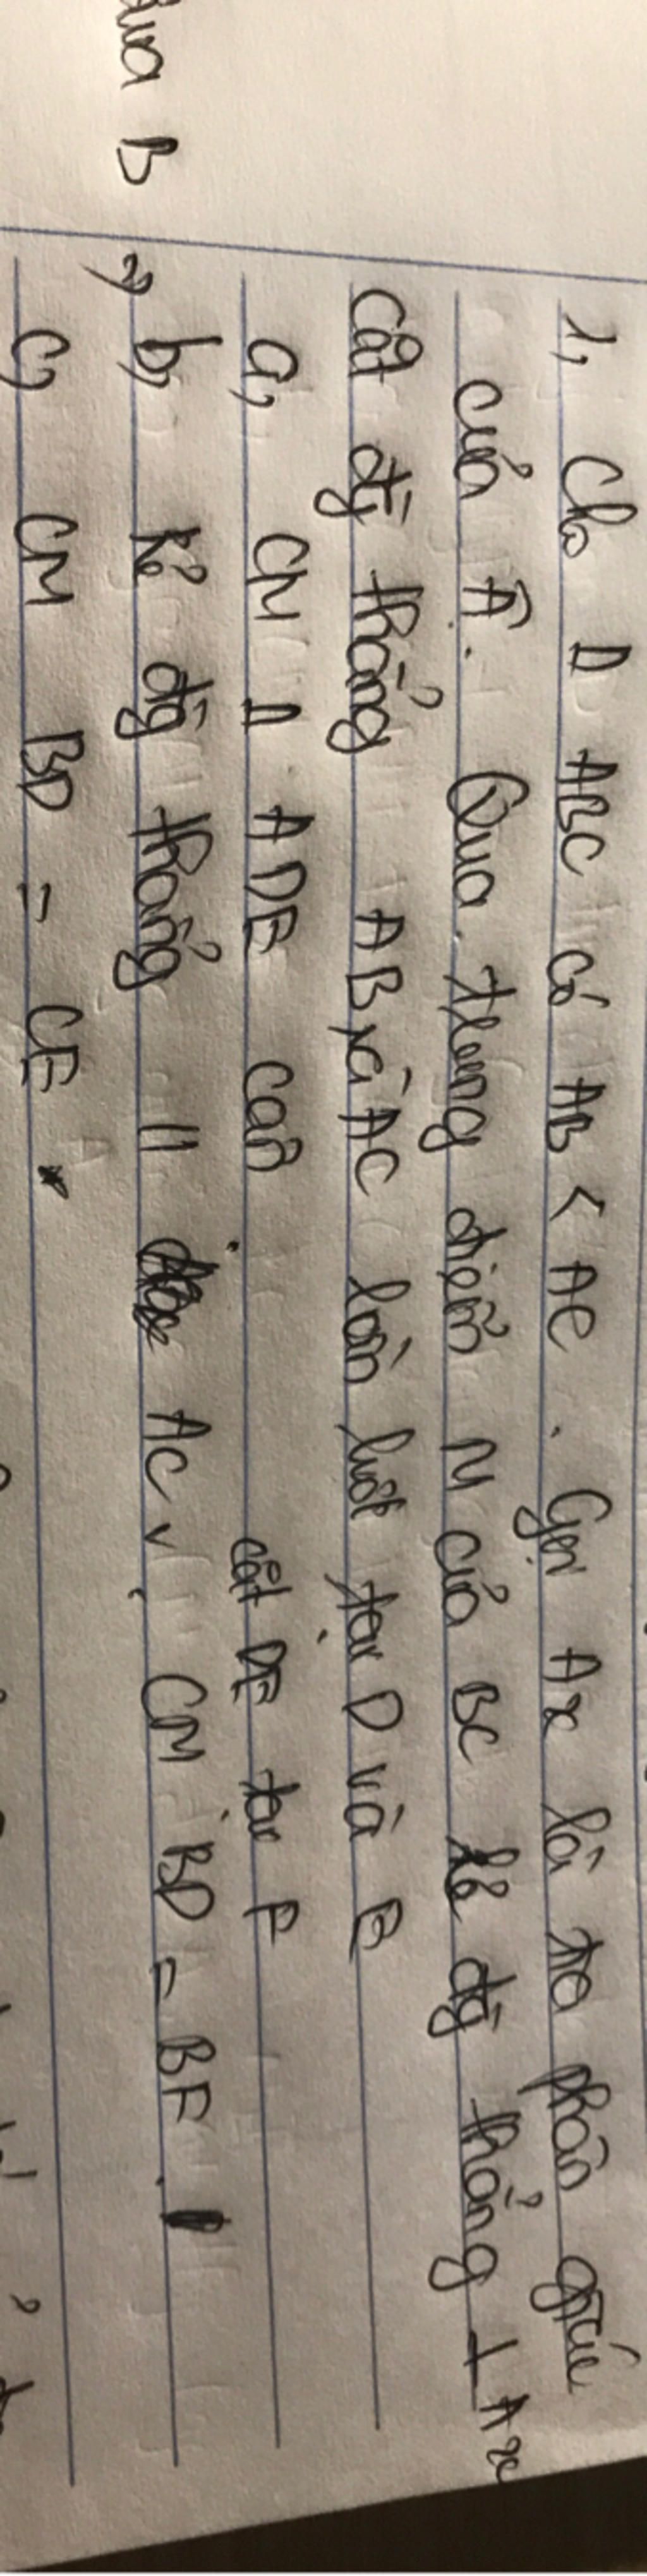 1, Cho Δ ABC có AB < AC. Gọi Ax là tia phân giác
của Â. Qua trung điểm M của BC kẻ đg thẳng ⊥ Ax
cắt đg thẳng AB và AC lần lượt tại D và E
a, CM Δ ADE cân
cắt DE tại F
qua B
b, Kẻ đg thẳng // AC, CM BD = BF.
c, CM BD = CE.